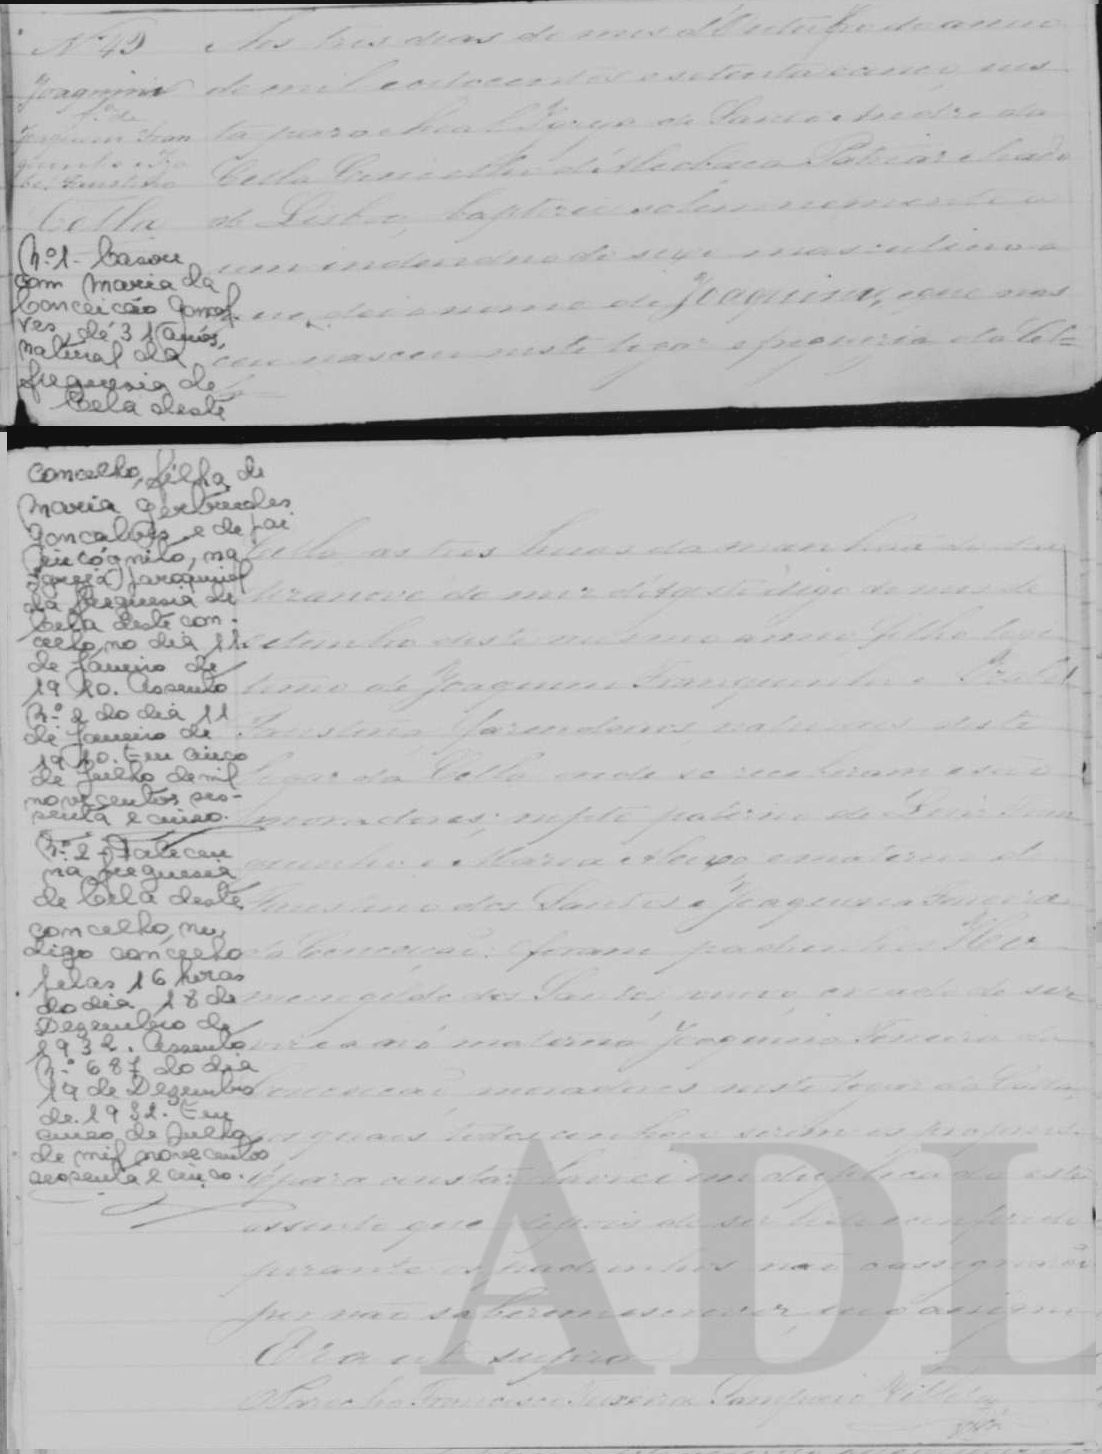 Nº 49
Joaquim
fº de
Joaquim Fran
quinho e Iza
bel Faustino
Cella
Aos tres dias do mez d'Outubro do anno
de mil oitocentos e setenta e cinco, nes
ta parochial Igreja de Santo André da
Cella Concelho d'Alcobaça Patriarchado
de Lisboa, baptizei solemnemente a
um individuo do sexo masculino a
quem dei o nome de Joaquim, e que nas
ceu nasceu neste logar e freguezia da Cel=
N.º 1 - Casou
com Maria da
Conceição Gonçal
ves, de 31 anos,
natural da
freguesia de
Cela deste
concelho, filha de
Maria Gertrudes
Gonçalves e de pai
incógnito, na
Igreja Paroquial
da freguesia de
Cela deste con-
celho, no dia 11
de Janeiro de
1910. Assento
N.º 2 do dia 11
de Janeiro de
1910. Em cinco
de Julho de mil
novecentos ses-
senta e cinco.
N.º 2 - Faleceu
na freguesia
de Cela deste
concelho, no,
digo concelho
pelas 16 horas
do dia 18 de
Dezembro de
1932. Assento
N.º 687 do dia
19 de Dezembro
de 1932. Em
cinco de Julho
de mil novecentos
sessenta e cinco.
Cella as tres horas da manhaã do dia
dezanove do mez d'Agosto digo do mez de
Setembro deste mesmo anno filho legi
timo de Joaquim Franquinho e Izabel
Faustino fazendeiros naturaes deste
logar da Cella onde se receberam e são
moradores; nepto paterno de Luiz Fran
quinho e Maria Aleixo e materno de
Faustino dos Santos e Joaquina Ferreira
da Conceição. foram padrinhos Her
menegildo dos Santos, viuvo, creado de ser
vir e a avó materna Joaquina Ferreira da
Conceição moradores neste logar da Cella,
os quaes todos conheço serem os proprios.
E para constar lavrei em duplicado este
assento que depois de ser lido e conferido
perante os padrinhos não o assignarão
por não saberem escrever, eu o assigno
Era ut supra
O Parocho Francisco Teixeira Sampaio Villela
ADL